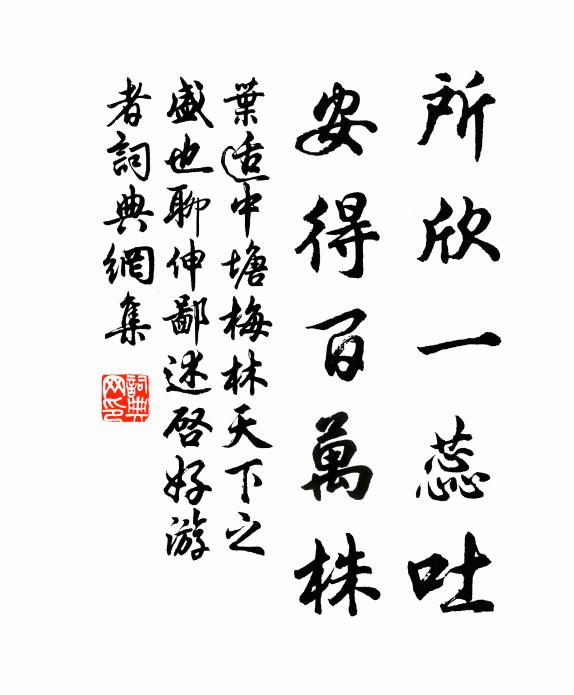 所欣一蕊吐
安得百萬株
葉适中塘梅林天下之
盛也聊伸鄙述啓好游
者詞典網集
詞典網印